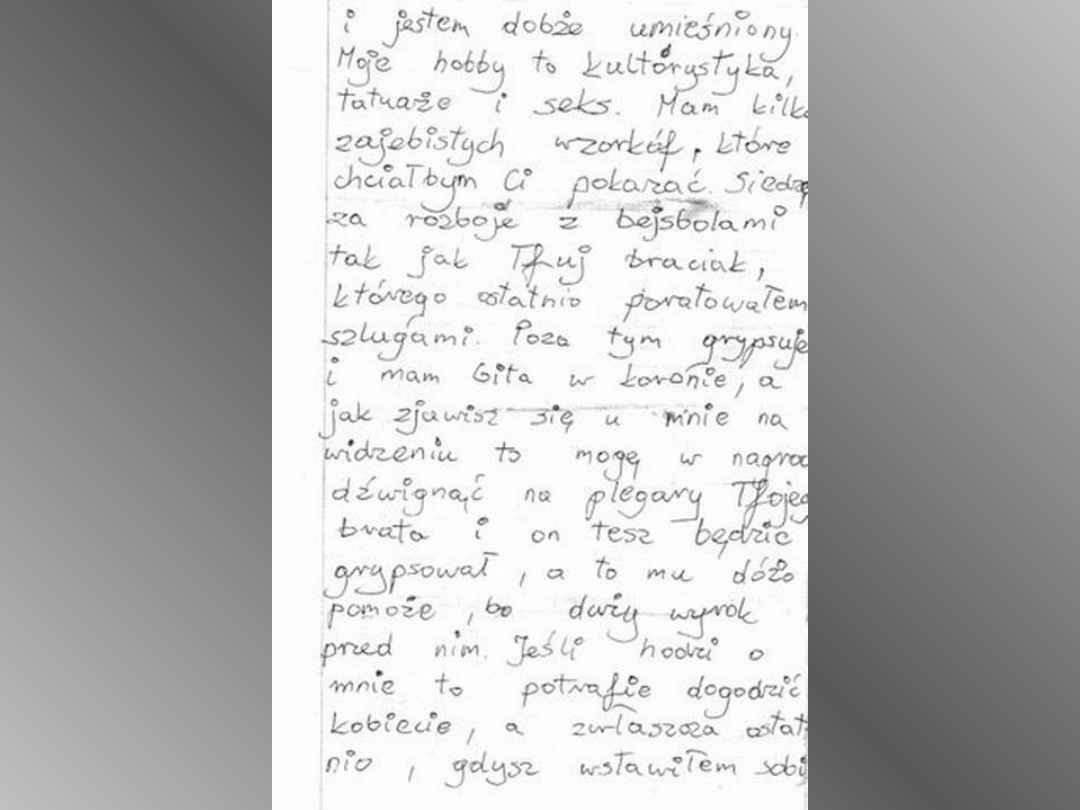 i jestem dobże umieśniony.
Moje hobby to kultórystyka,
tatuaże i seks. Mam kilka
zajebistych wzorkóf, które
chciałbym Ci pokazać. Siedzę
za rozboje z bejsbolami
tak jak Tfuj braciak,
którego ostatnio poratowałem
szlugami. Poza tym grypsuje
i mam Gita w koronie, a
jak zjawisz się u mnie na
widzeniu to mogę w nagrod
dźwignąć na plegary Tfojeg
brata i on tesz będzie
grypsował, a to mu dóżo
pomoże, bo duży wyrok
pred nim. Jeśli hodzi o
mnie to potrafie dogodzić
kobiecie, a zwłaszcza ostat
nio, gdysz wstawiłem sobi